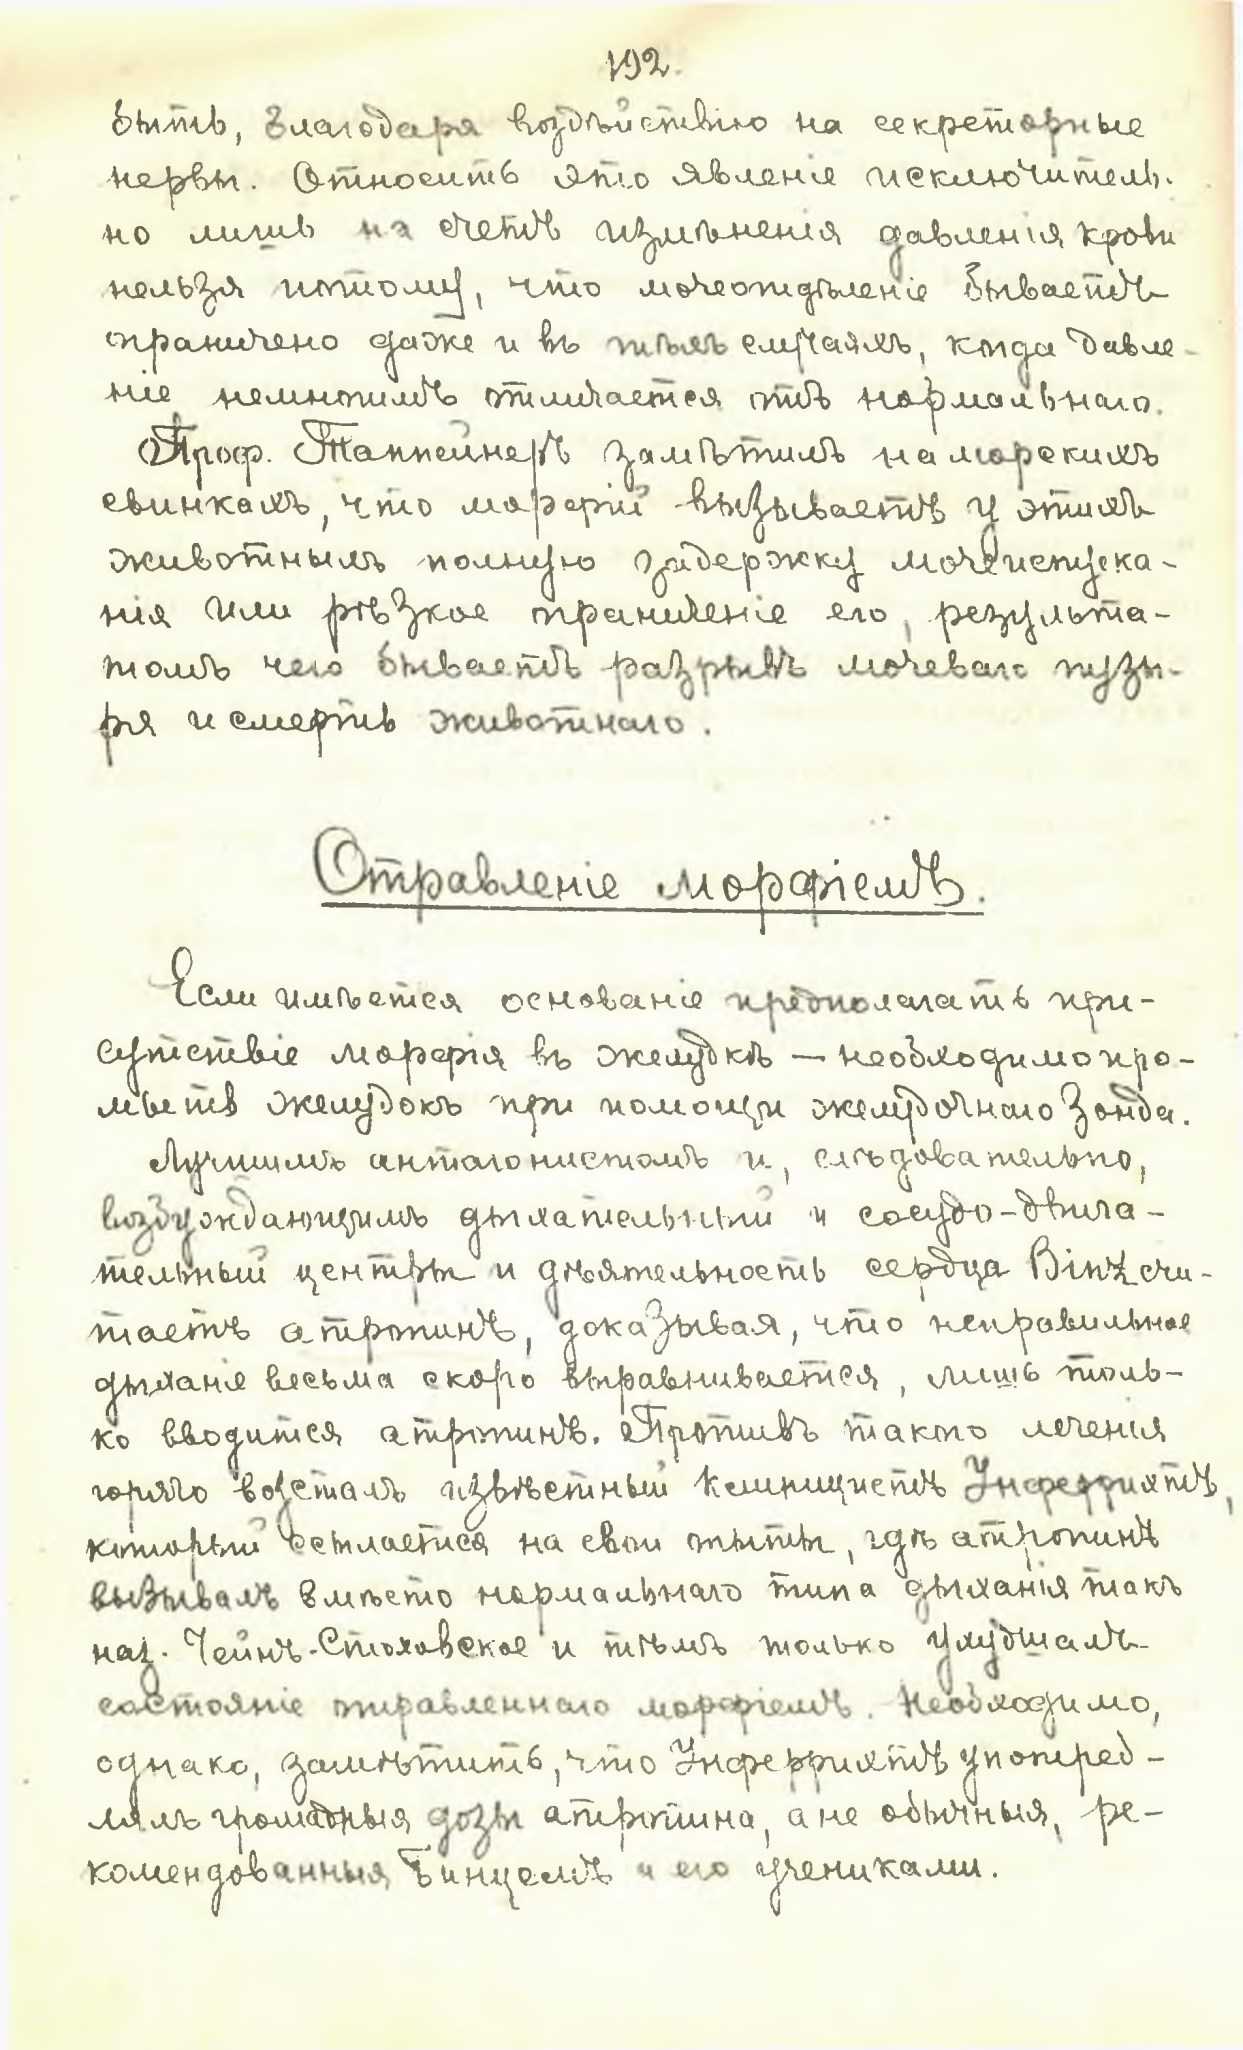 192.
быть, благодаря воздѣйствію на секреторные
нервы. Относить это явленіе исключитель-
но лишь на счетъ измѣненія давленія крови
нельзя потому, что мочеотдѣленіе бываетъ
ограничено даже и въ тѣхъ случаяхъ, когда давле-
ніе немногимъ отличается отъ нормальнаго.
Проф. Таппейнеръ замѣтилъ на морскихъ
свинкахъ, что морфій вызываетъ у этихъ
животныхъ полную задержку мочеиспуска-
нія или рѣзкое ограниченіе его, результа-
томъ чего бываетъ разрывъ мочеваго пузы-
ря и смерть животнаго.
Отравленіе морфіемъ.
Если имѣется основаніе предполагать при-
сутствіе морфія въ желудкѣ — необходимо про-
мыть желудокъ при помощи желудочнаго зонда.
Лучшимъ антагонистомъ и, слѣдовательно,
возбуждающимъ дыхательный и сосудо-двига-
тельный центры и дѣятельность сердца Binz счи-
таетъ атропинъ, доказывая, что неправильное
дыханіе весьма скоро выравнивается, лишь толь-
ко вводится атропинъ. Противъ такого леченія
горячо возсталъ извѣстный клиницистъ Унферрихтъ,
который ссылается на свои опыты, гдѣ атропинъ
вызывалъ вмѣсто нормальнаго типа дыханія такъ
наз. Чейнъ-Стоковское и тѣмъ только ухудшалъ
состояніе отравленнаго морфіемъ. Необходимо,
однако, замѣтить, что Унферрихтъ употреб-
лялъ громадныя дозы атропина, а не обычныя, ре-
комендованныя Бинцемъ и его учениками.